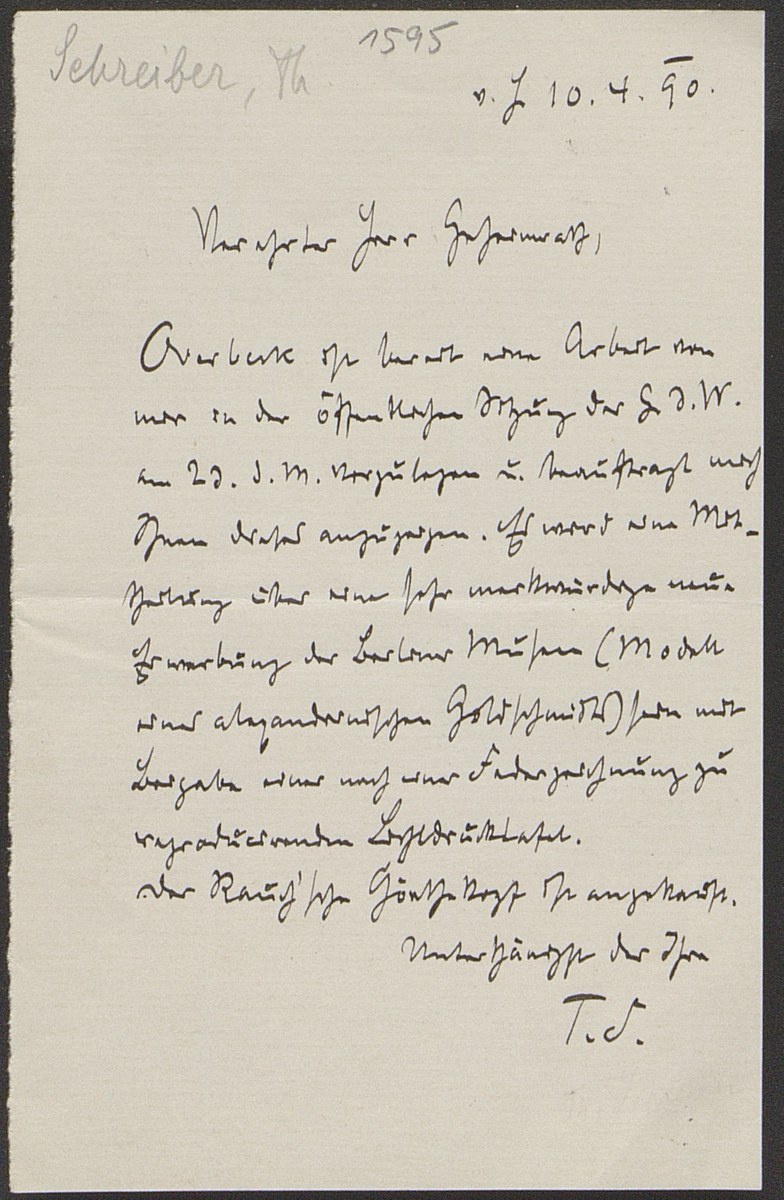 Schreiber, Th
1595
v. H. 10. 4. 90.
Verehrter Herr Geheimrath,
Overbeck ist bereit eine Arbeit von
mir in der öffentlichen Sitzung der G. d. W.
am 23. d. M. vorzulegen u. beauftragt mich
Ihnen dieses anzuzeigen. Es wird eine Mit-
theilung über eine sehr merkwürdige neue
Erwerbung der Berliner Museen (Modell
eines alexandrinischen Goldschmieds) sein mit
Beigabe einer nach einer Federzeichnung zu
reproducirenden Lichtdrucktafel.
Der Rauch'sche Goethekopf ist angekauft.
Unterthänigst der Ihre
T. S.